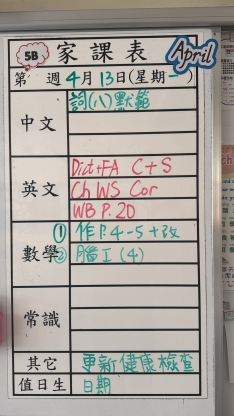 5B 家課表 April
第 週 4月13日(星期一)
中文 詞(八)默範
英文 Dict+FA C+S
Ch WS Cor
WB P.20
數學 ① 作P.4-5+改
② 腦工(4)
常識
其它 更新健康檢查
值日生 日期